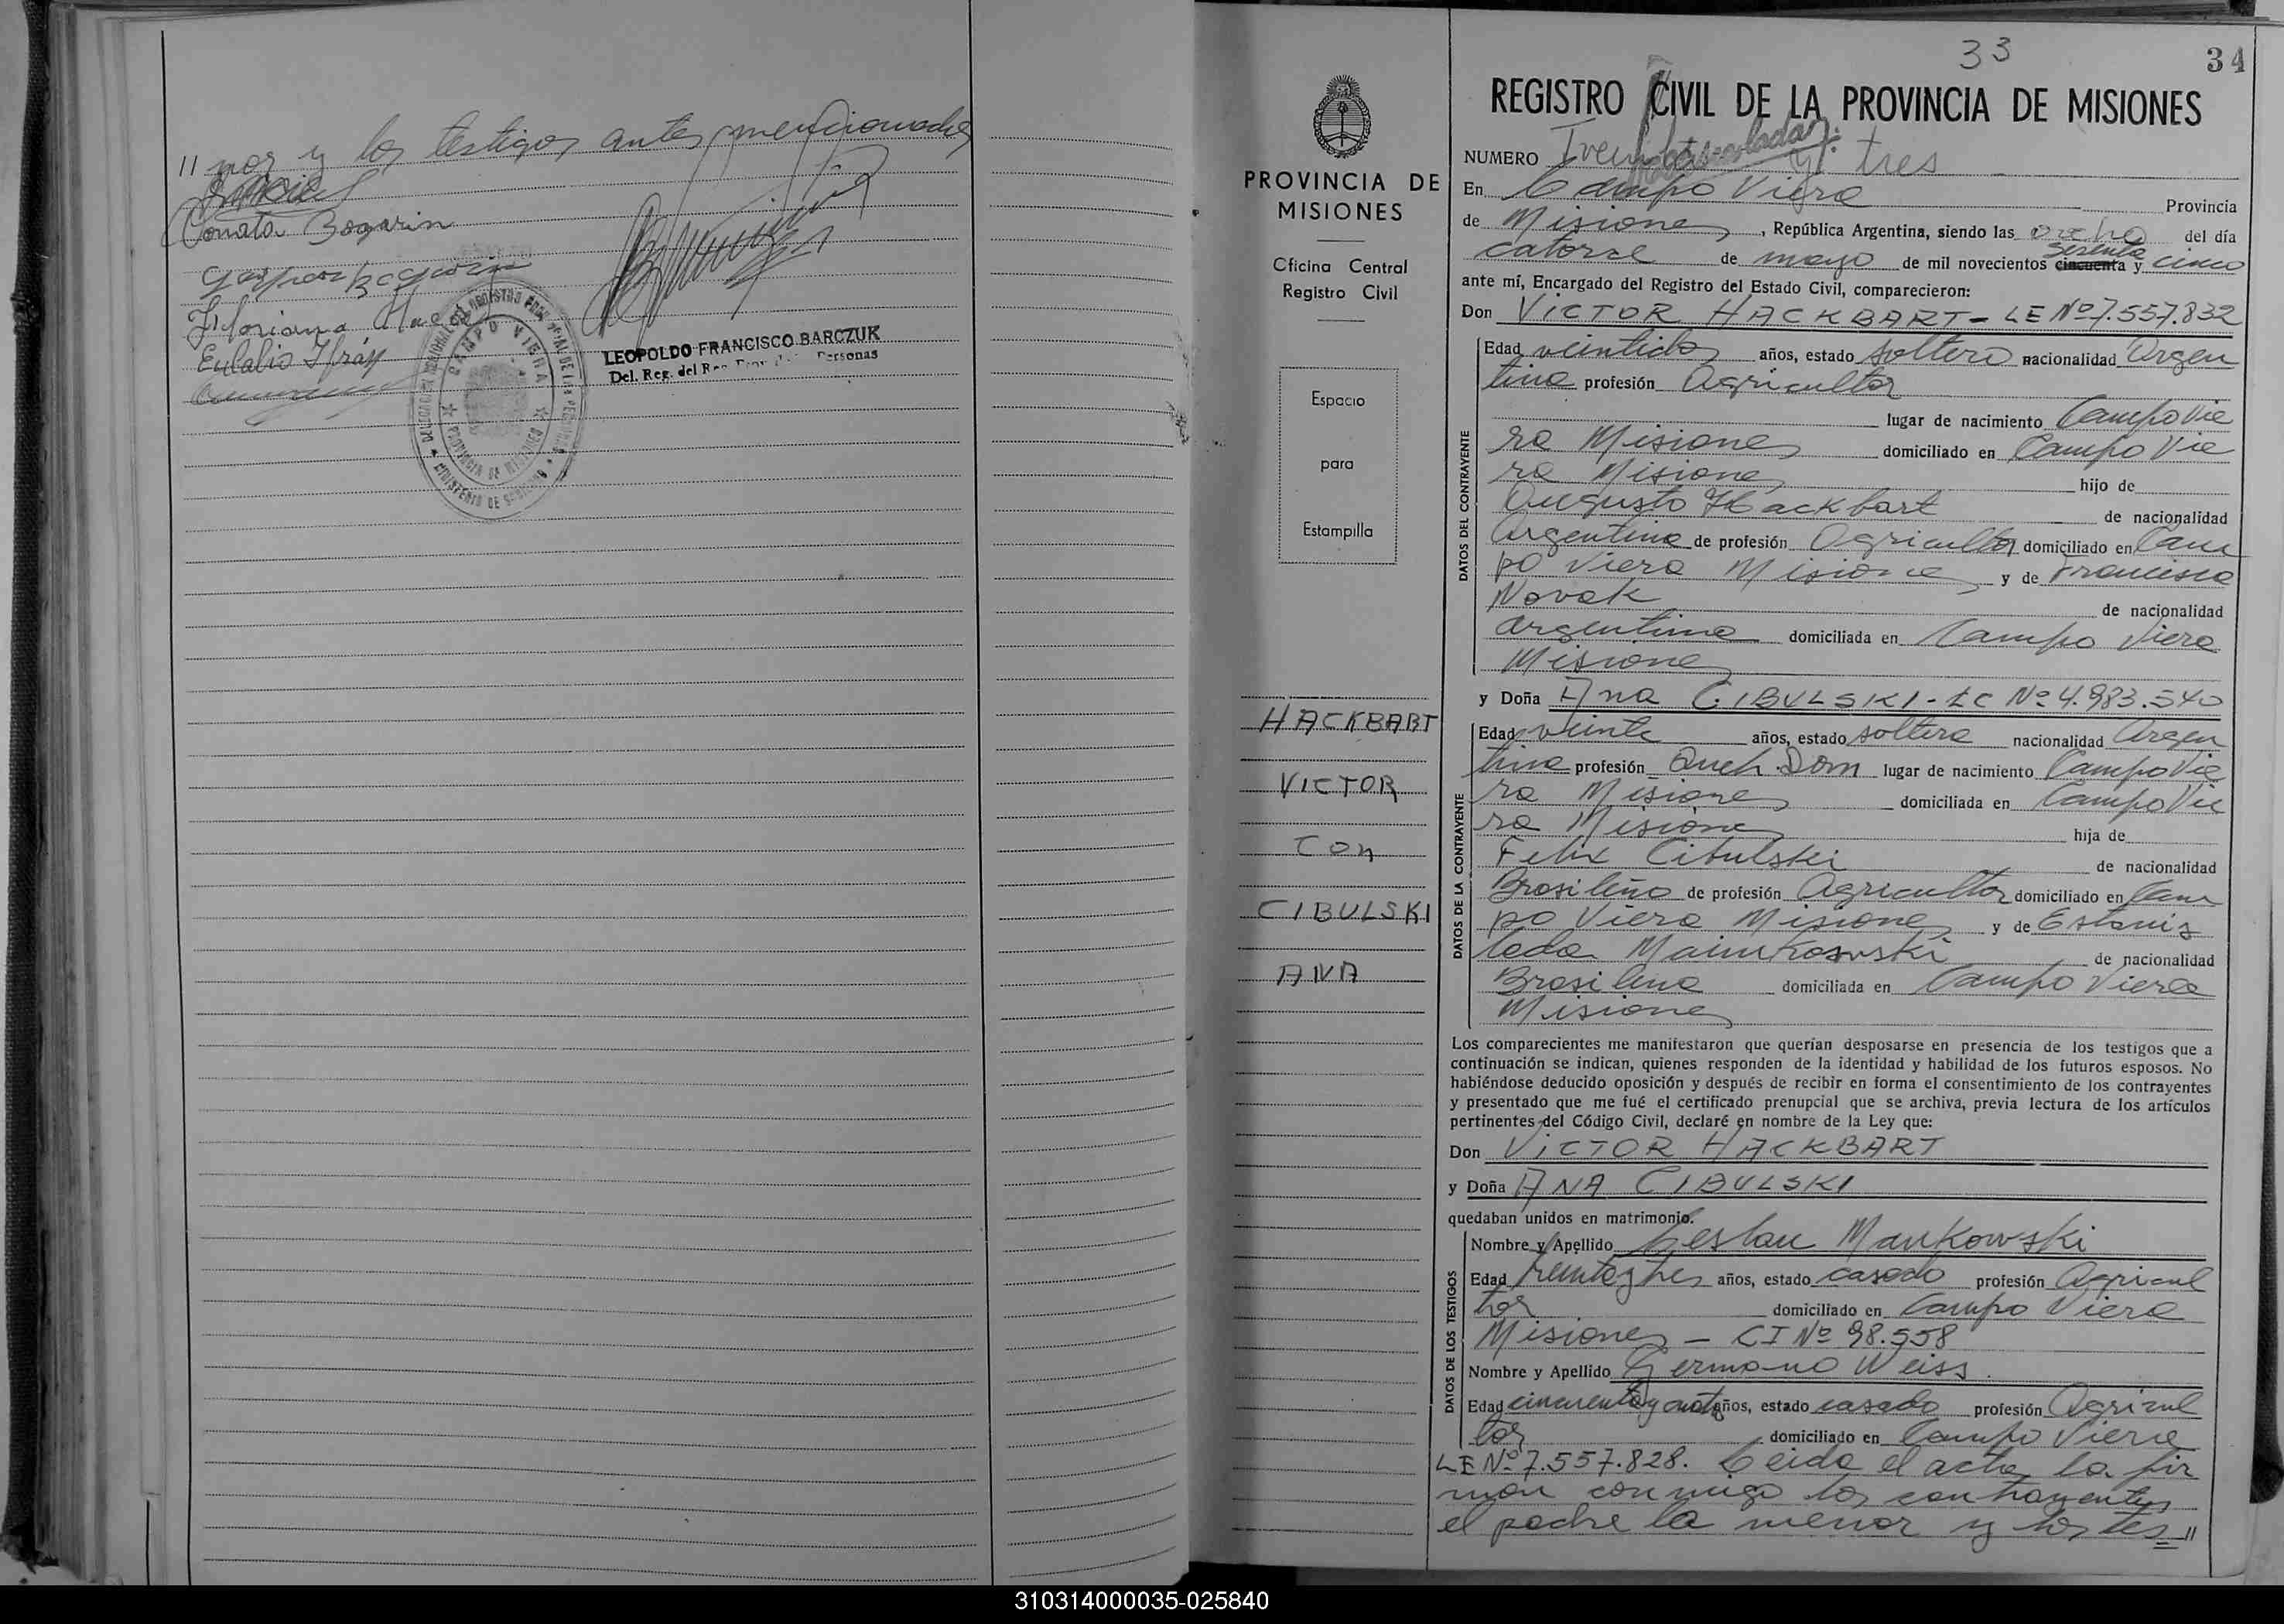 // nor y los testigos antes mencionados
Conrata Bogarin
Gaspar Bogarin
Floriana
Eulalio Ifrán
LEOPOLDO FRANCISCO BARCZUK
Del. Reg. del Personas
CAMPO VIERA
PROVINCIA DE MISIONES
MINISTERIO DE
PROVINCIA DE
MISIONES
Oficina Central
Registro Civil
Espacio
para
Estampilla
HACKBART
VICTOR
CON
CIBULSKI
ANA
33
34
REGISTRO CIVIL DE LA PROVINCIA DE MISIONES
NUMERO Treinta y tres
En Campo Viera Provincia
de Misiones, República Argentina, siendo las ocho del día
catorce de mayo de mil novecientos cincuenta setenta y cinco
ante mí, Encargado del Registro del Estado Civil, comparecieron:
Don VICTOR HACKBART - LE Nº 7.557.832
DATOS DEL CONTRAYENTE
Edad veintidos años, estado soltero nacionalidad Argen
tina profesión Agricultor
lugar de nacimiento Campo Vie
ra Misiones domiciliado en Campo Vie
ra Misiones hijo de
Augusto Hackbart de nacionalidad
Argentina de profesión Agricultor domiciliado en Cam
po Viera Misiones y de Francisca
Novak de nacionalidad
argentina domiciliada en Campo Viera
Misiones
y Doña Ana CIBULSKI - LC Nº 4.983.540
DATOS DE LA CONTRAYENTE
Edad veinte años, estado soltera nacionalidad Argen
tina profesión Queh. Dom lugar de nacimiento Campo Vie
ra Misiones domiciliada en Campo Vie
ra Misiones hija de
Felix Cibulski de nacionalidad
Brasileña de profesión Agricultor domiciliado en Cam
po Viera Misiones y de Estanis
lada de nacionalidad
Brasilena domiciliada en Campo Viera
Misiones
Los comparecientes me manifestaron que querían desposarse en presencia de los testigos que a
continuación se indican, quienes responden de la identidad y habilidad de los futuros esposos. No
habiéndose deducido oposición y después de recibir en forma el consentimiento de los contrayentes
y presentado que me fué el certificado prenupcial que se archiva, previa lectura de los artículos
pertinentes del Código Civil, declaré en nombre de la Ley que:
Don VICTOR HACKBART
y Doña ANA CIBULSKI
quedaban unidos en matrimonio.
DATOS DE LOS TESTIGOS
Nombre y Apellido Ceslau Mankowski
Edad treinta y tres años, estado casado profesión Agricul
tor domiciliado en Campo Viera
Misiones - CI Nº 98.558
Nombre y Apellido Germano Weiss
Edad cincuenta y cuatro años, estado casado profesión Agricul
tor domiciliado en Campo Viera
LE Nº 7.557.828. Leida el acta la fir
man conmigo los contrayentes
el padre la menor y los tes //
310314000035-025840